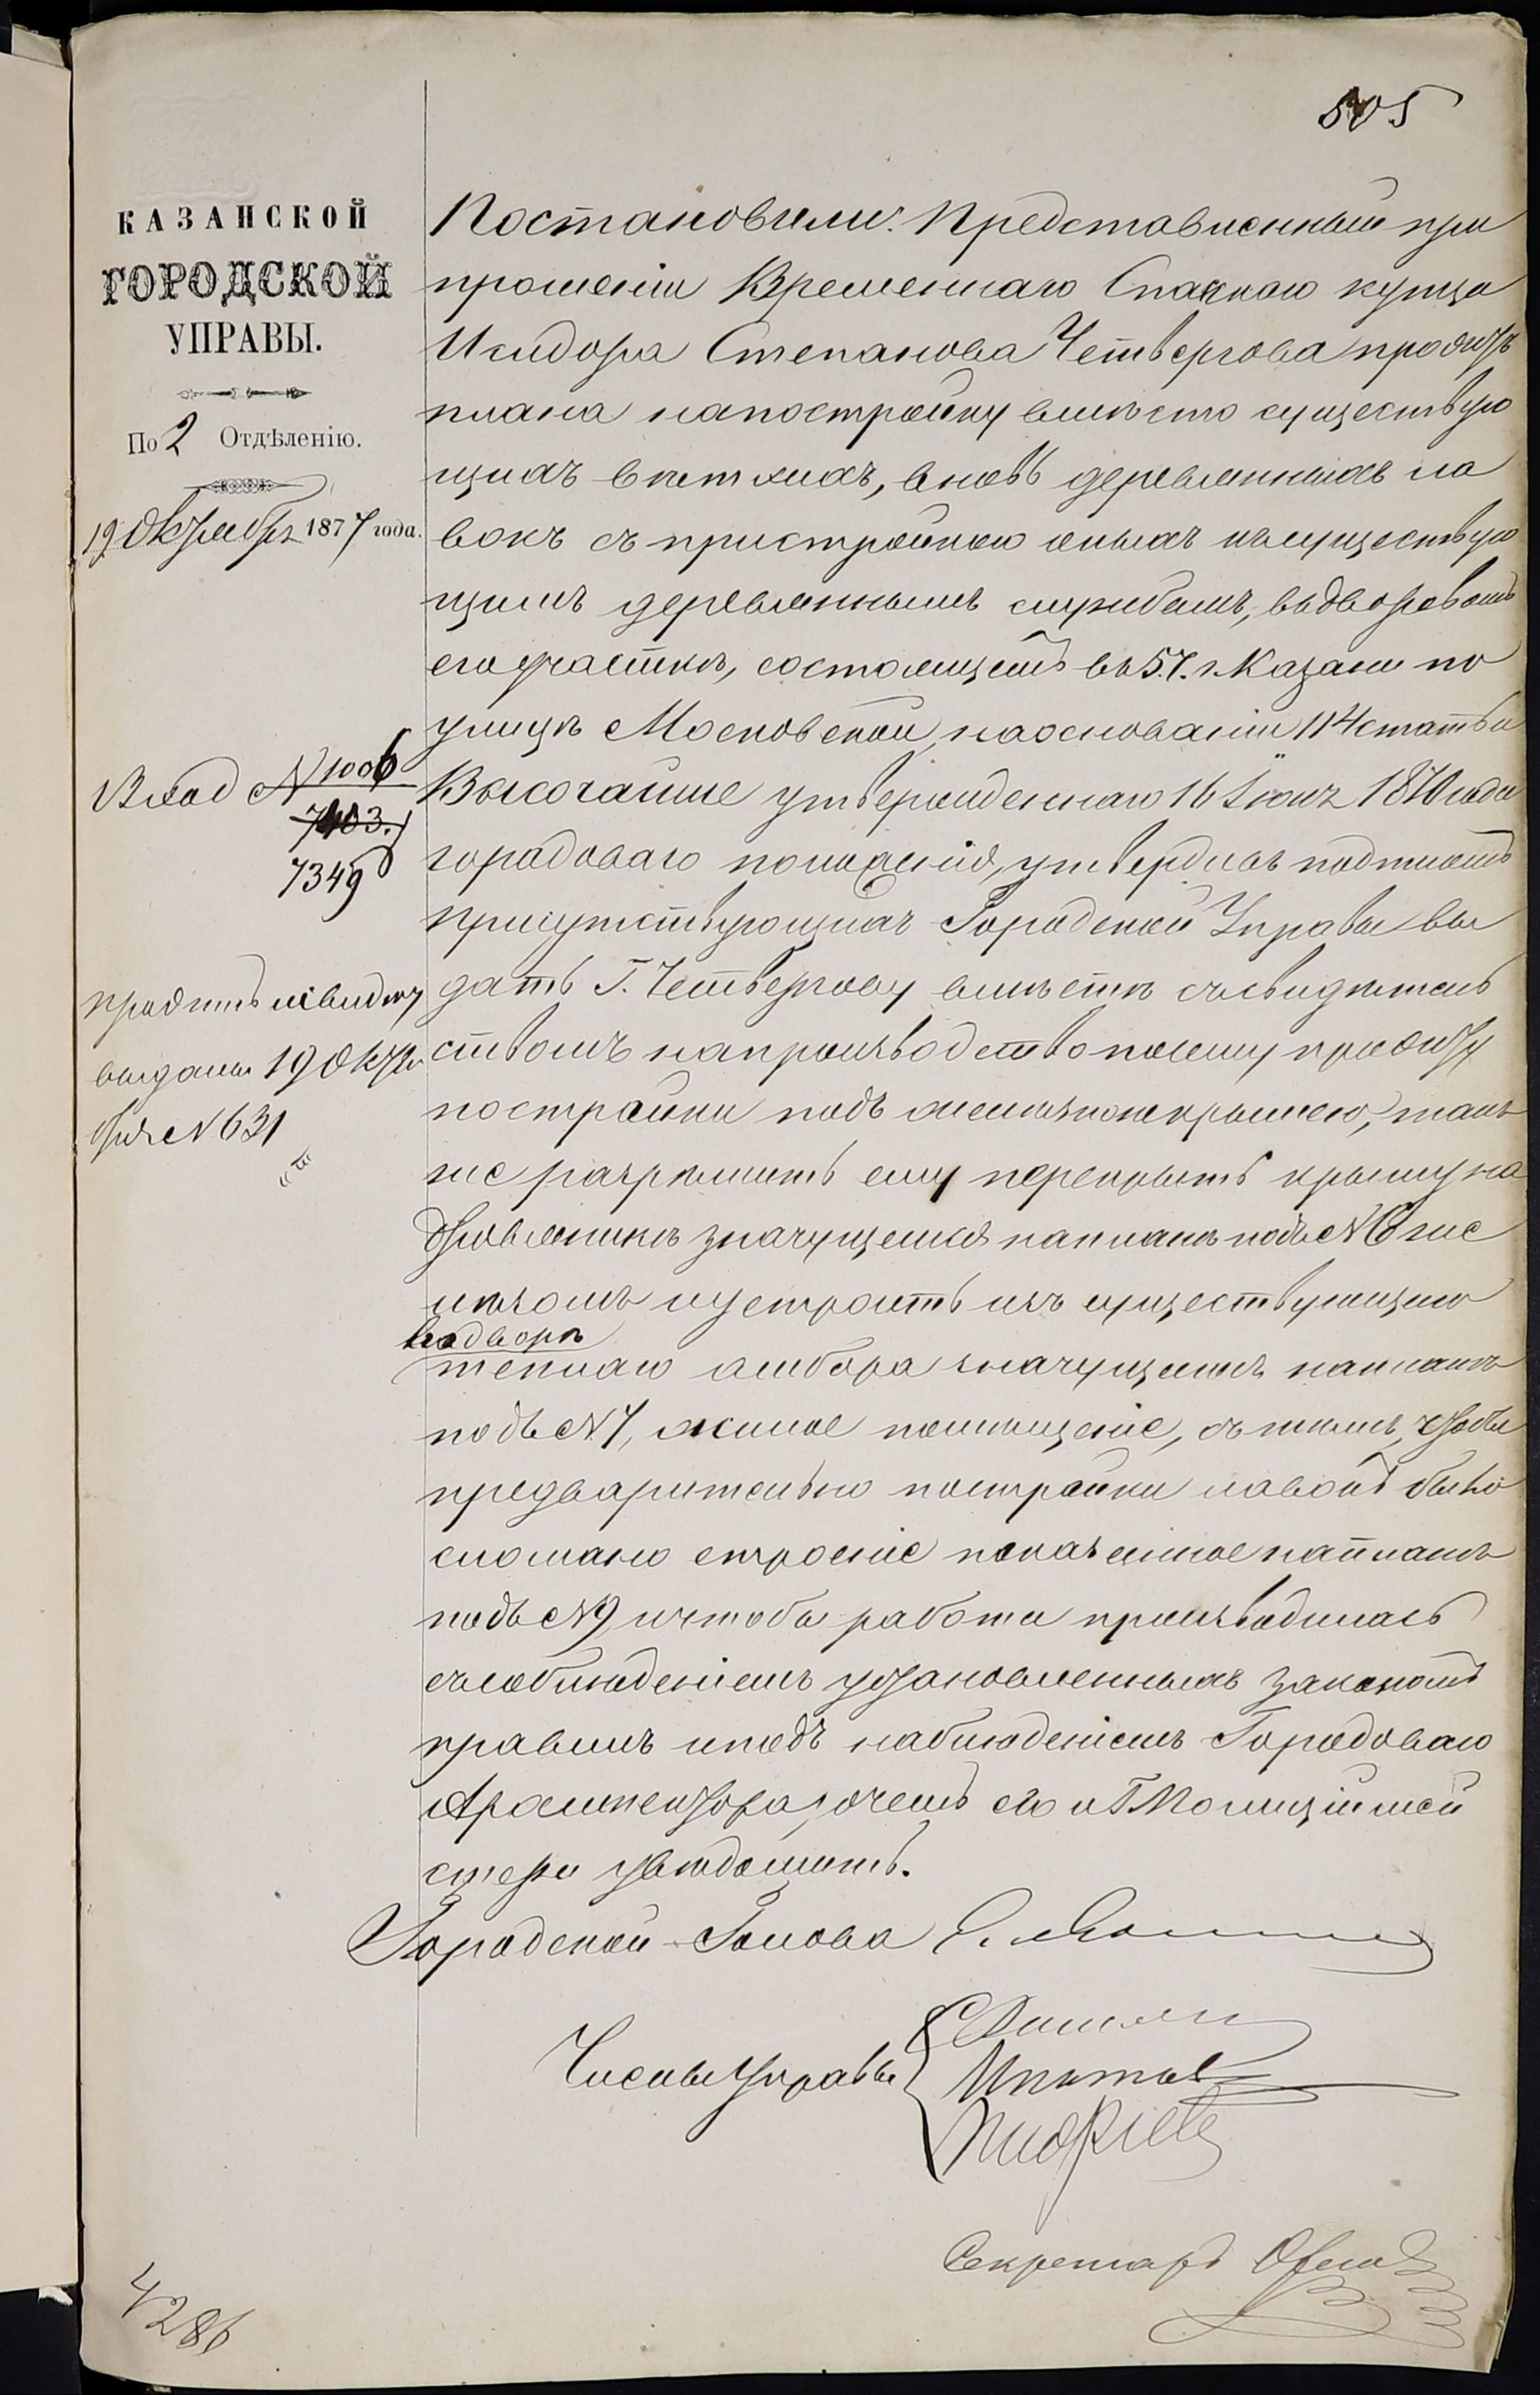 505
КАЗАНСКОЙ
ГОРОДСКОЙ
УПРАВЫ.
По 2 Отдѣленію.
19 Октября 1877 года.
Вход № 1006
7403.
7349
Проэктъ и свидѣт
выданы 19 Октя
бря № 631
Постановили: Представленный при
прошеніи Временнаго Спасскаго купца
Исидора Степанова Четвергова проэктъ
плана на постройку вмѣсто существую
щихъ ветхихъ, вновь деревянныхъ ла
вокъ съ пристройкою оныхъ къ существую
щимъ деревяннымъ службамъ, въ дворовомъ
его участкѣ, состоящемъ въ 5.ч. г. Казани по
улицѣ Московской, на основаніи 114 статьи
Высочайше утвержденнаго 16 Іюня 1870 года
городоваго положенія, утвердивъ подписомъ
присутствующихъ Городской Управы вы
дать Г. Четвергову вмѣстѣ съ свидѣтель
ствомъ на производство по сему проэкту
постройки подъ желѣзною крышею, такъ
же разрѣшить ему перекрыть крышу на
дровяникѣ значущемся на планѣ подъ № 6 же
лѣзомъ и устроить изъ существующаго
на дворѣ
теплаго амбара значущемся на планѣ
подъ № 7, жилое помѣщеніе, съ тѣмъ, чтобы
предварительно постройки лавокъ было
сломано строеніе показанное на планѣ
подъ № 9, и чтобы работы производились
съ соблюденіемъ установленныхъ закономъ
правилъ и подъ наблюденіемъ Городоваго
Архитектора, о чемъ его и Г. Полиціймей
стера увѣдомить.
Городской Голова
Члены Управы
Секретарь
4286